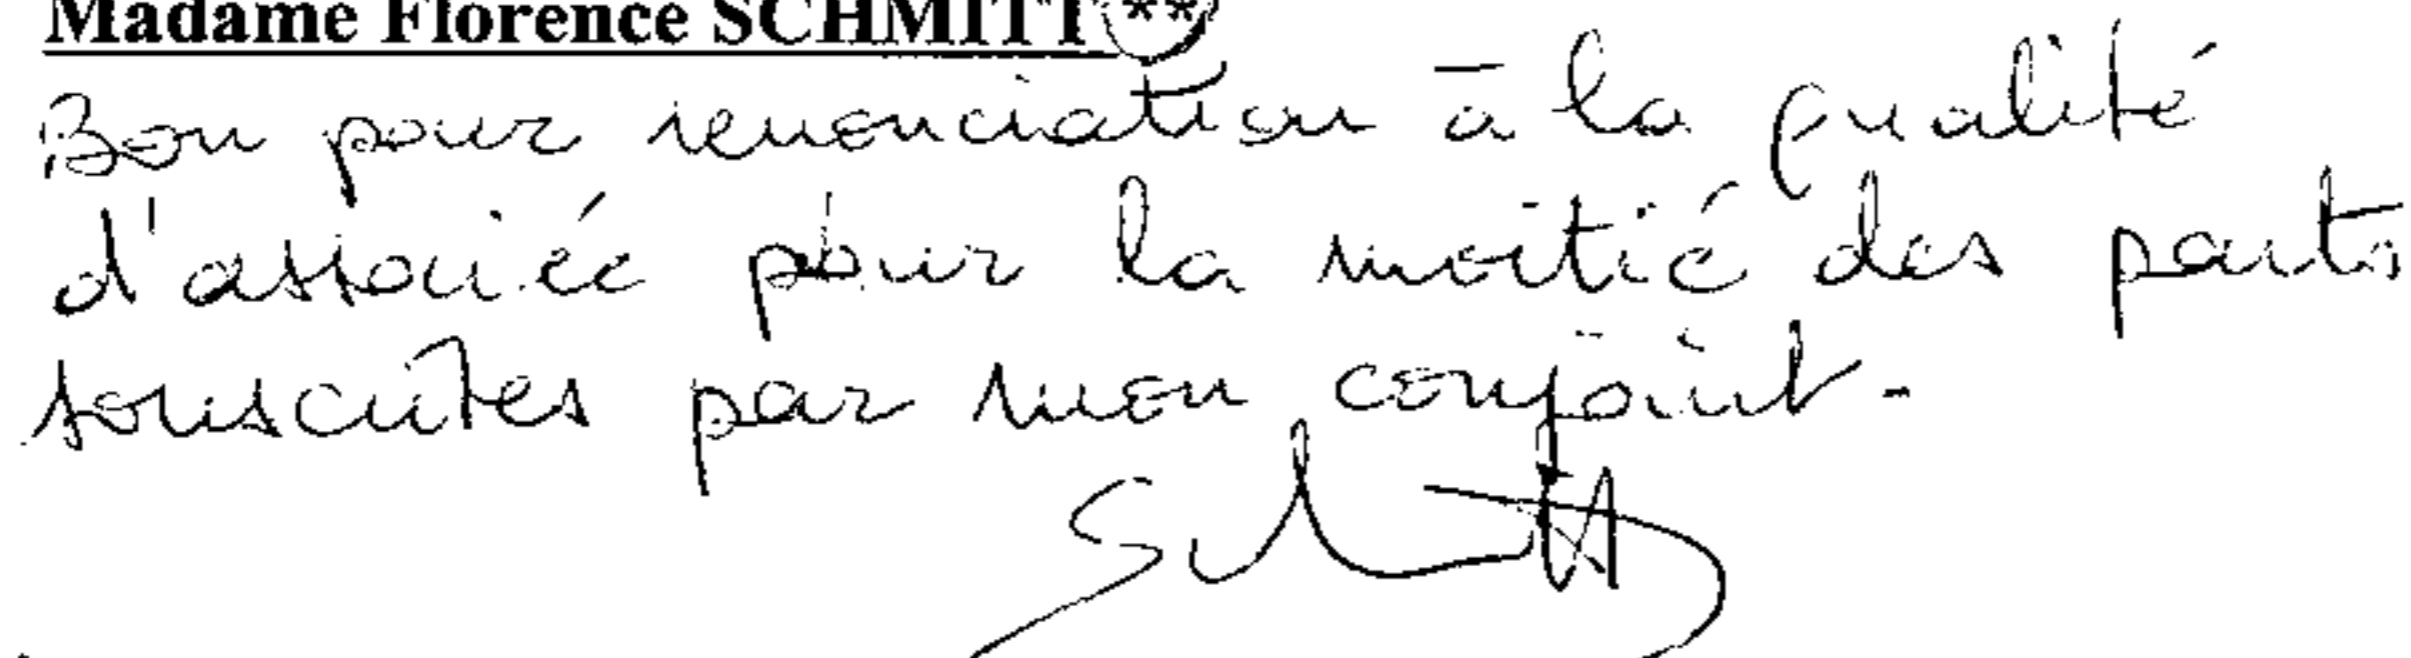 Madame Florence SCHMITT (**)
Bon pour renonciation à la qualité
d'associée pour la moitié des parts
souscrites par mon conjoint.
Schmitt